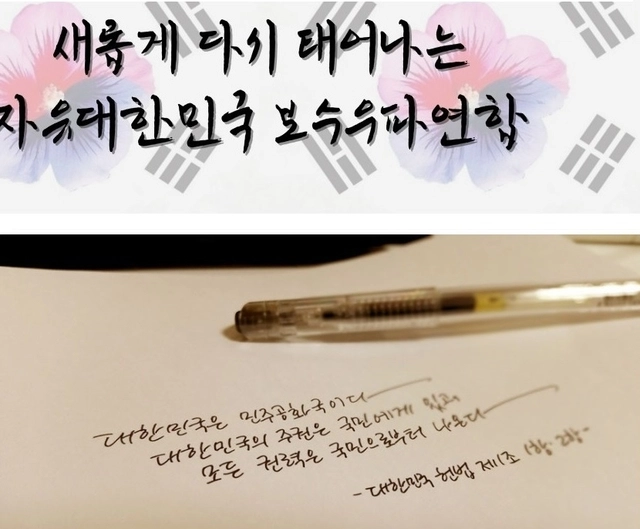 새롭게 다시 태어나는
자유대한민국 보수우파연합
대한민국은 민주공화국이다
대한민국의 주권은 국민에게 있고
모든 권력은 국민으로부터 나온다
- 대한민국 헌법 제1조 1항·2항 -